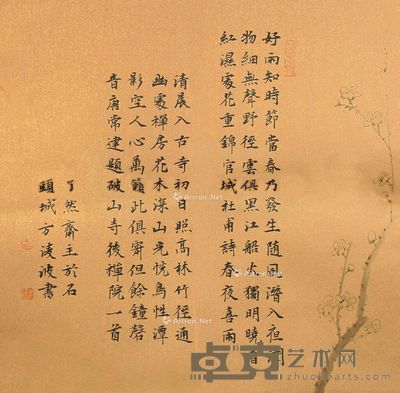 好雨知時節當春乃發生隨風潛入夜潤
物細無聲野徑雲俱黑江船火獨明曉看
紅濕處花重錦官城杜甫詩春夜喜雨
清晨入古寺初日照高林竹徑通
幽處禪房花木深山光悅鳥性潭
影空人心萬籟此俱寂但餘鐘磬
音唐常建題破山寺後禪院一首
了然齋主於石
頭城方淩波書
Artron.Net
Artron.Net
Artron.Net
Artron.Net
卓克艺术网
zhuokearts.com